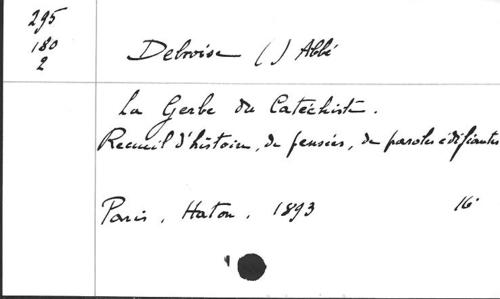 295
180
2
Debroise ( ) Abbé
La Gerbe du Catéchiste.
Recueil d'histoire, de pensées, de paroles édifiantes
Paris, Haton, 1893 16°